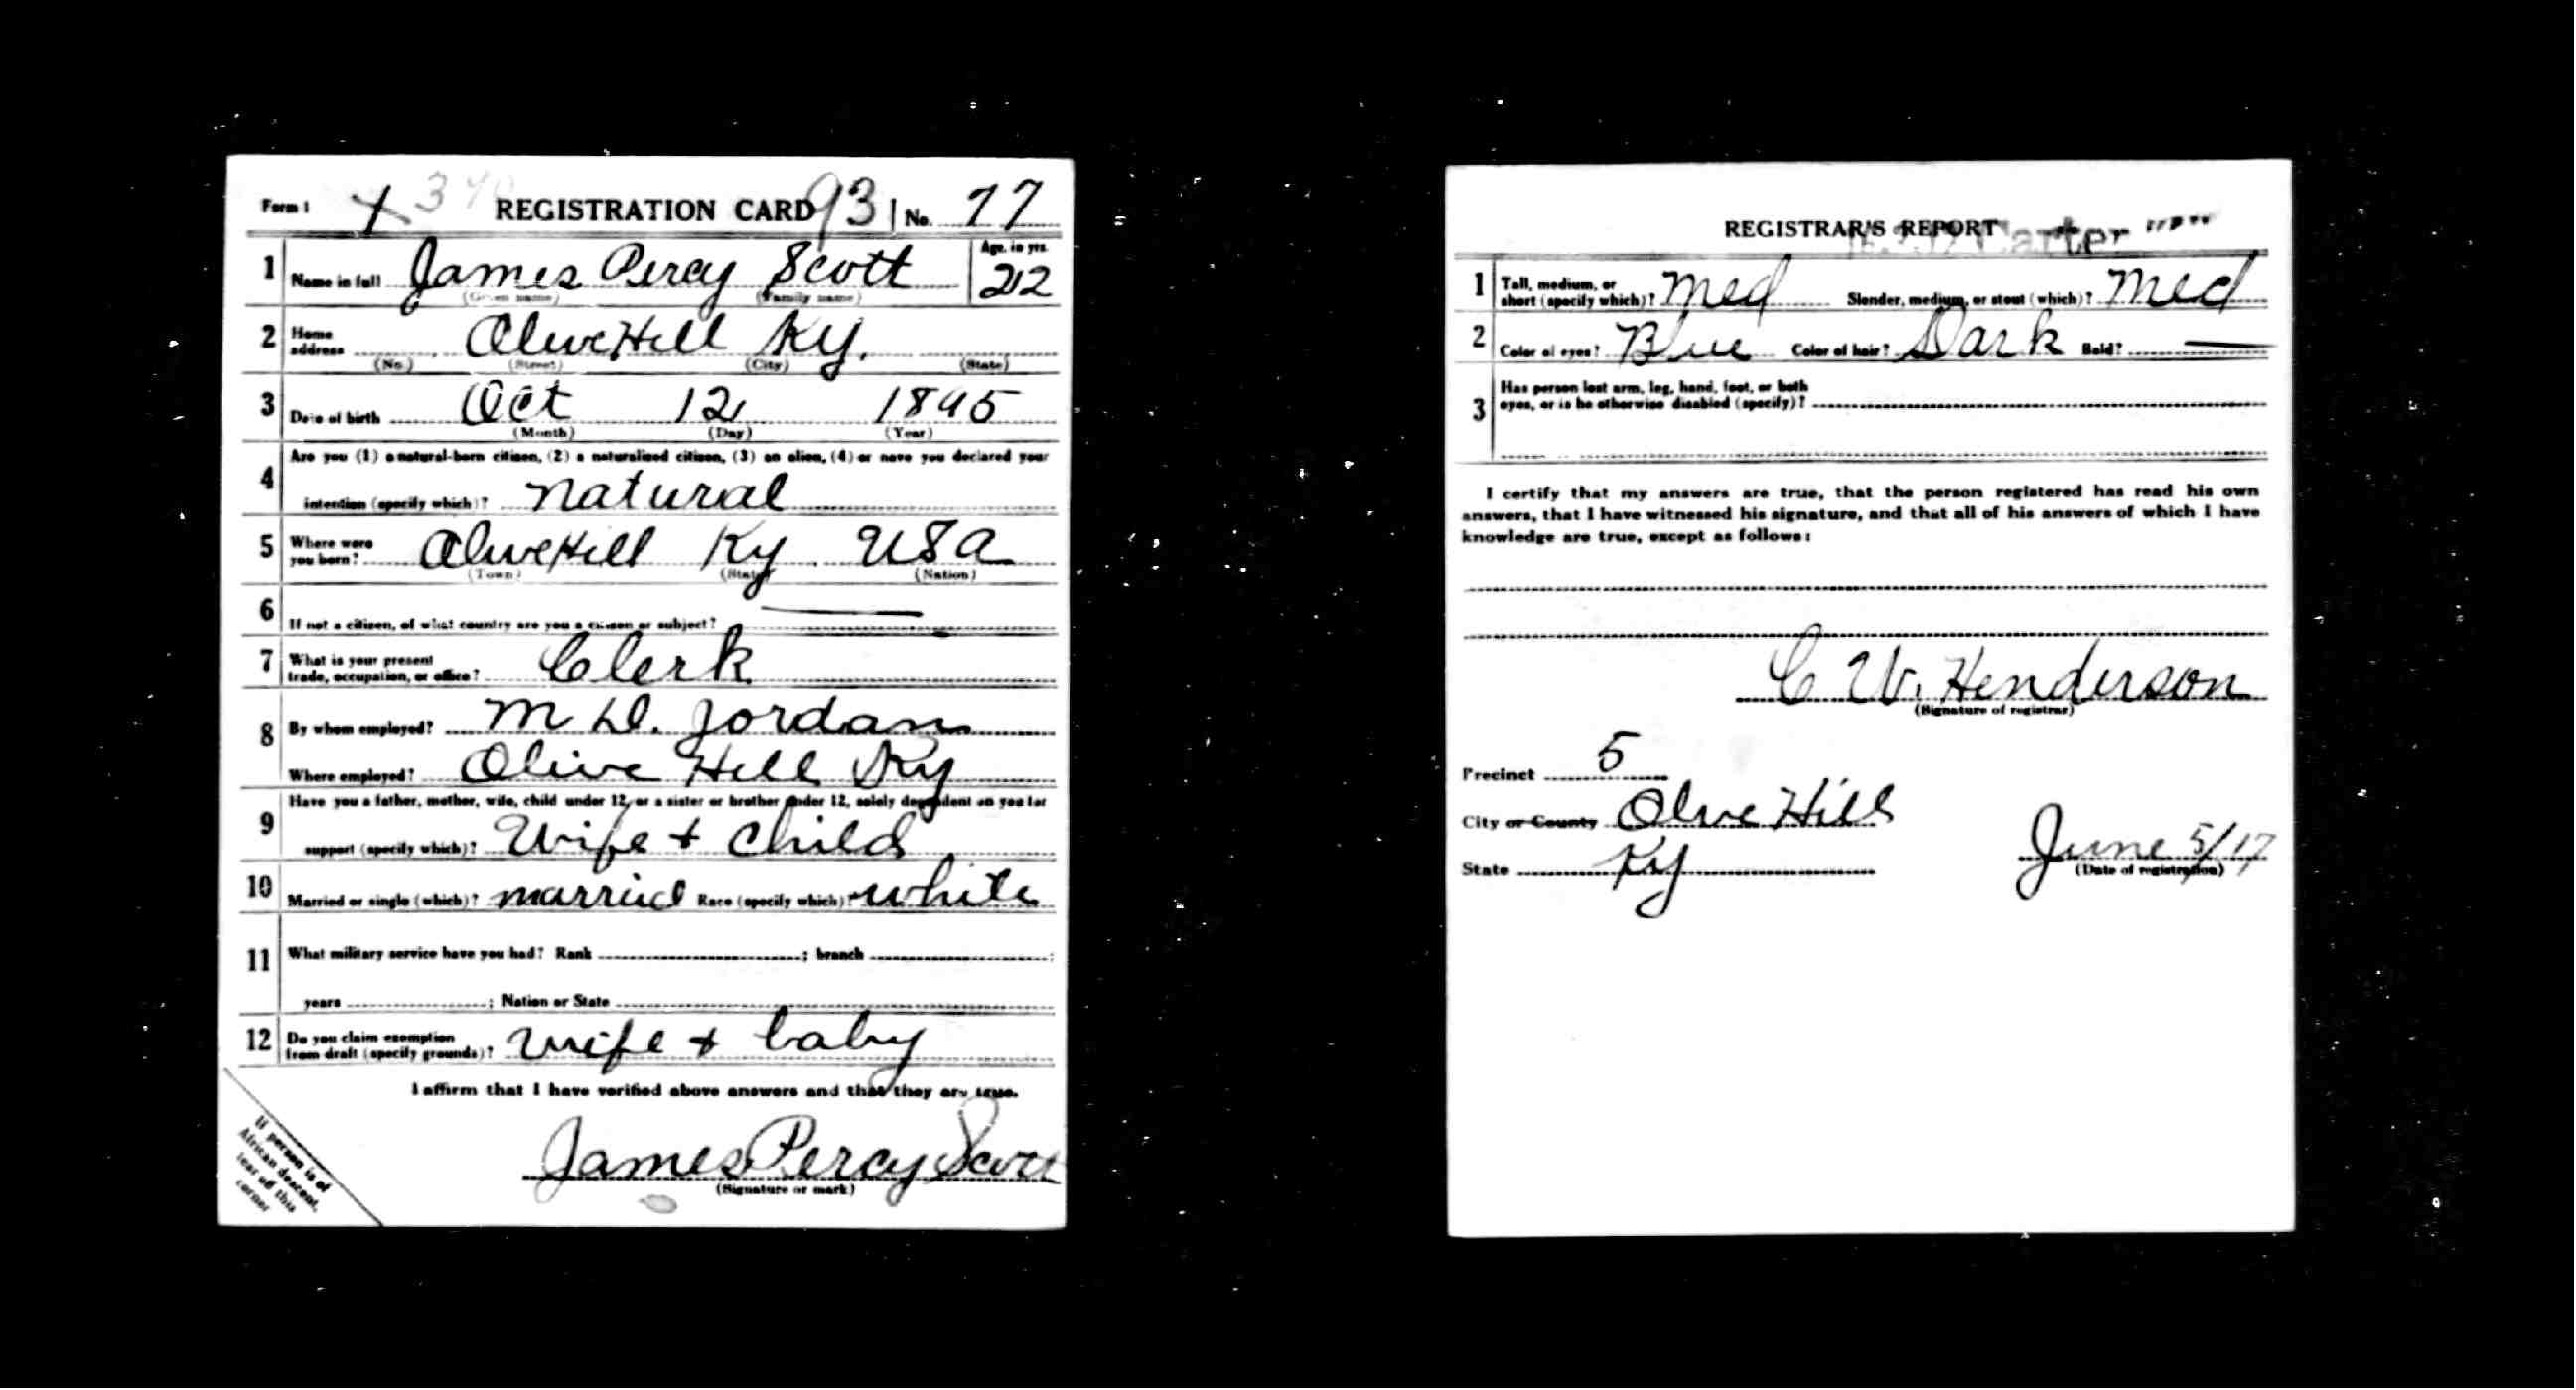 Form 1 REGISTRATION CARD 93 No. 77
1 Name in full James Percy Scott Age, in yrs. 22
(Given name) (Family name)
2 Home address Olive Hill Ky.
(No.) (Street) (City) (State)
3 Date of birth Oct 12 1895
(Month) (Day) (Year)
4 Are you (1) a natural-born citizen, (2) a naturalized citizen, (3) an alien, (4) or have you declared your
intention (specify which)? natural
5 Where were you born? Olive Hill Ky USA
(Town) (State) (Nation)
6 If not a citizen, of what country are you a citizen or subject?
7 What is your present
trade, occupation, or office? Clerk
8 By whom employed? M D. Jordan
Where employed? Olive Hill Ky
9 Have you a father, mother, wife, child under 12, or a sister or brother under 12, solely dependent on you for
support (specify which)? Wife + Child
10 Married or single (which)? married Race (specify which)? white
11 What military service have you had? Rank ; branch ;
years ; Nation or State
12 Do you claim exemption
from draft (specify grounds)? wife + baby
I affirm that I have verified above answers and that they are true.
James Percy Scott
(Signature or mark)
If person is of
African descent,
tear off this
corner
REGISTRAR'S REPORT
Carter
1 Tall, medium, or
short (specify which)? Med Slender, medium, or stout (which)? Med
2 Color of eyes? Blue Color of hair? Dark Bald?
3 Has person lost arm, leg, hand, foot, or both
eyes, or is he otherwise disabled (specify)?
I certify that my answers are true, that the person registered has read his own
answers, that I have witnessed his signature, and that all of his answers of which I have
knowledge are true, except as follows:
C W. Henderson
(Signature of registrar)
Precinct 5
City or County Olive Hill
State Ky
June 5/17
(Date of registration)